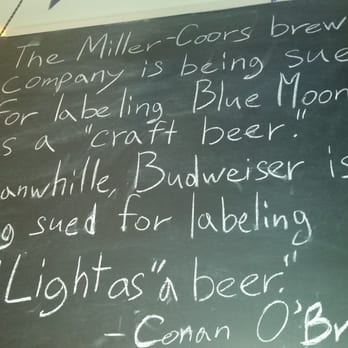 The Miller-Coors brew
Company is being sue
For labeling Blue Moon
s a "craft beer."
anwhille, Budweiser is
g sued for labeling
"Light as "a beer."
-Conan O'Br